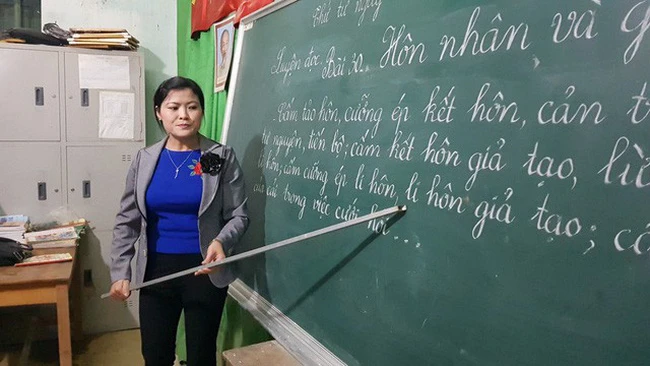 Thứ tư ngày
Luyện đọc: Bài 20. Hôn nhân và g
Cấm tảo hôn, cưỡng ép kết hôn, cản t
tự nguyện, tiến bộ; cấm kết hôn giả tạo, lừ
li hôn; cấm cưỡng ép li hôn, li hôn giả tạo; cả
của cải trong việc cưới hỏi...